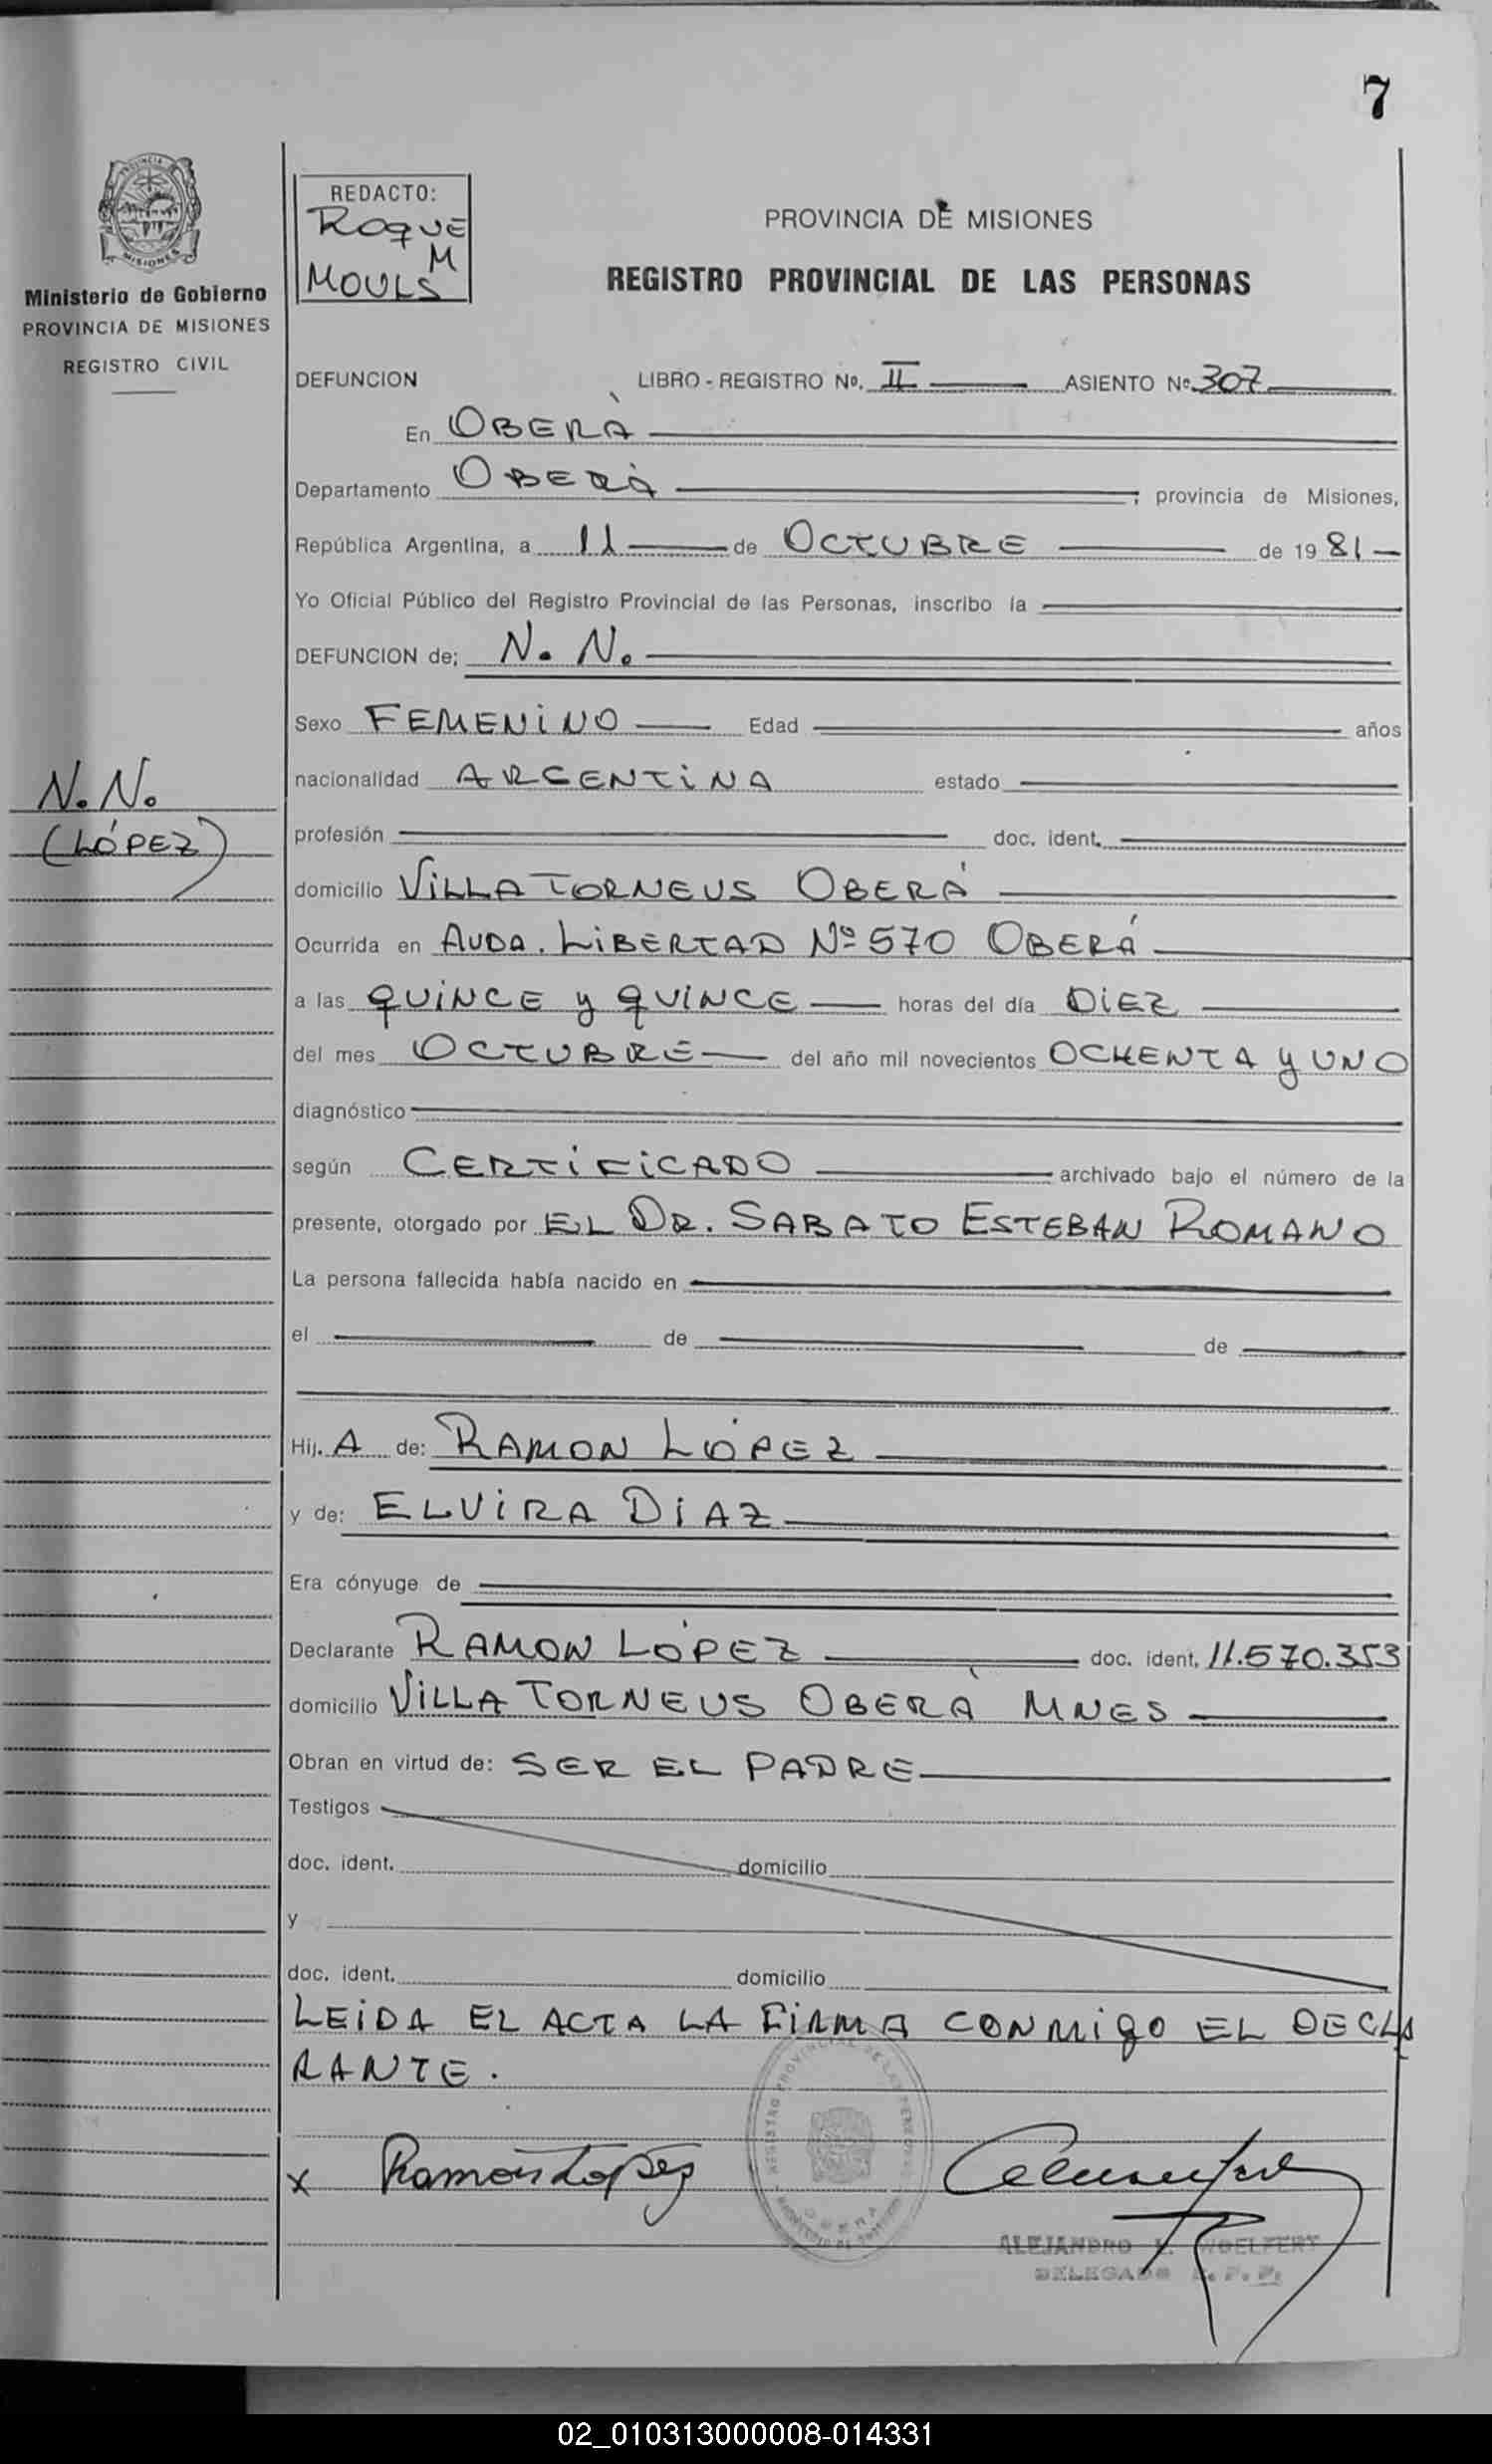 7
PROVINCIA DE MISIONES
REGISTRO PROVINCIAL DE LAS PERSONAS
Ministerio de Gobierno
PROVINCIA DE MISIONES
REGISTRO CIVIL
REDACTO:
ROQUE
M
MOULS
DEFUNCION LIBRO - REGISTRO No. II ASIENTO No. 307
En OBERÀ
Departamento OBERÀ ; provincia de Misiones,
República Argentina, a 11 de OCTUBRE de 1981
Yo Oficial Público del Registro Provincial de las Personas, inscribo la
DEFUNCION de; N. N.
Sexo FEMENINO Edad años
nacionalidad ARGENTINA estado
N. N.
(LÓPEZ)
profesión doc. ident.
domicilio VILLA TORNEUS OBERÁ
Ocurrida en AVDA. LIBERTAD Nº 570 OBERÁ
a las QUINCE y QUINCE horas del día DIEZ
del mes OCTUBRE del año mil novecientos OCHENTA y UNO
diagnóstico
según CERTIFICADO archivado bajo el número de la
presente, otorgado por EL DR. SABATO ESTEBAN ROMANO
La persona fallecida había nacido en
el de de
Hij. A de: RAMON LÓPEZ
y de: ELVIRA DIAZ
Era cónyuge de
Declarante RAMON LÓPEZ doc. ident. 11.570.353
domicilio VILLA TORNEUS OBERÀ MNES
Obran en virtud de: SER EL PADRE
Testigos
doc. ident. domicilio
y
doc. ident. domicilio
LEIDA EL ACTA LA FIRMA CONMIGO EL DECLA
RANTE.
x Ramón López
ALEJANDRO WOELFERT
DELEGADO R. P. P.
02_010313000008-014331